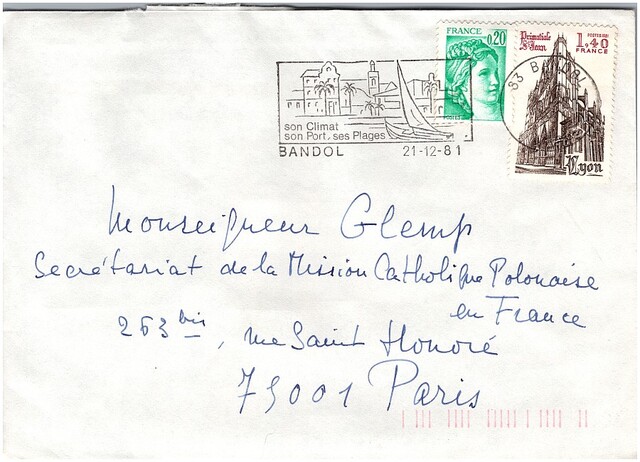 FRANCE 0,20
POSTES
Primatiale
St Jean
POSTES 1981
1,40
FRANCE
Lyon
83 BANDOL
son Climat
son Port, ses Plages
BANDOL 21-12-81
Monseigneur Glemp
Secrétariat de la Mission Catholique Polonaise
en France
263 bis, rue Saint Honoré
75001 Paris